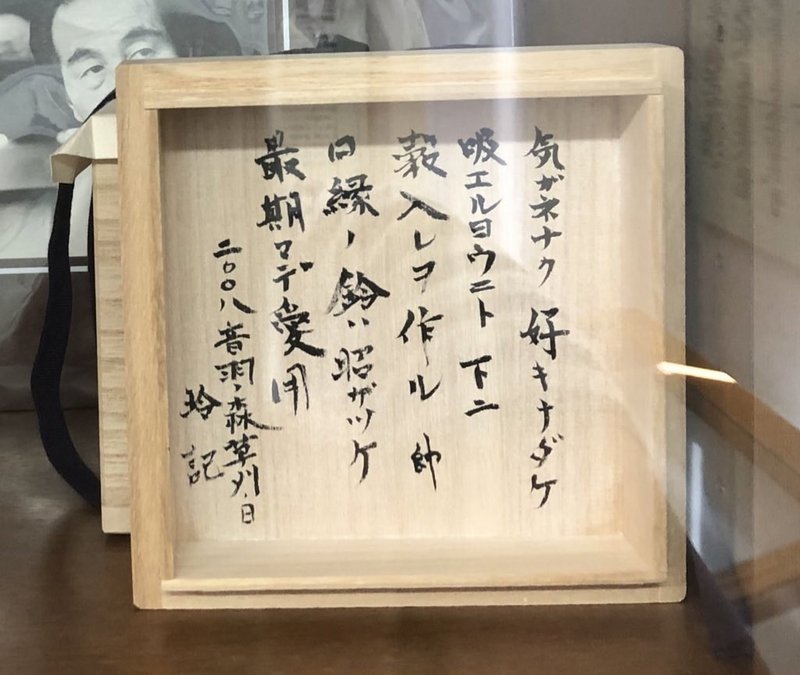 気ガネナク 好キナダケ
吸エルヨウニト 下ニ
殻入レヲ作ル 帥
口縁ノ鈴ハ昭ガツケ
最期マデ愛用
二〇〇八音羽ノ森草刈ノ日
玲 記